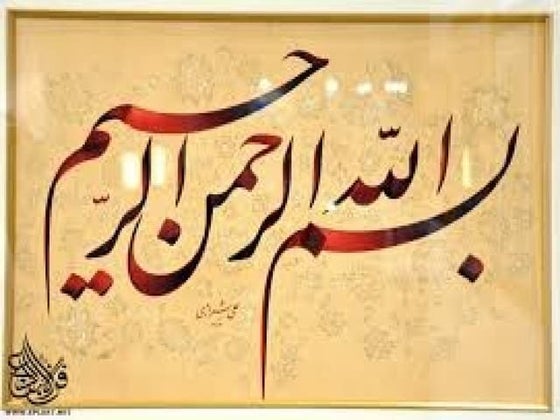 بسم الله الرحمن الرحیم
علی شیرازی
WWW.XPLORT.NET